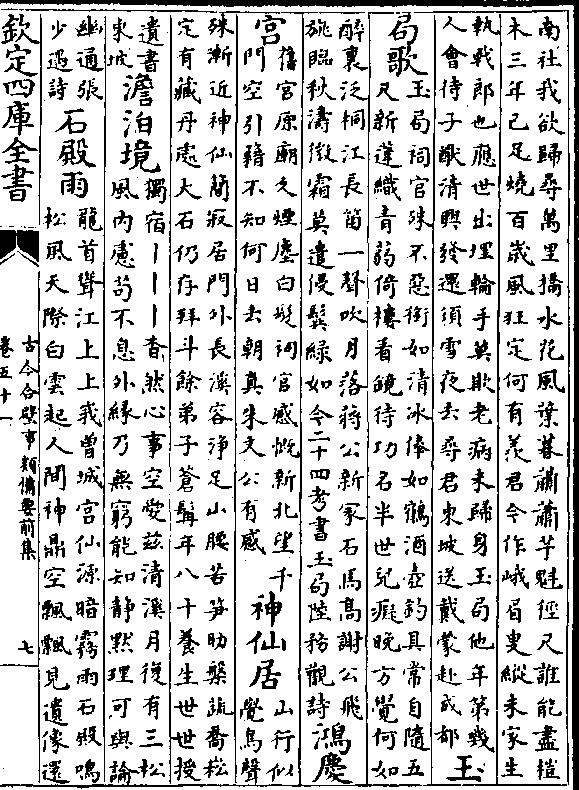 南社我欲歸尋萬里橋水花風葉暮蕭蕭芋魁徑尺誰能盡榿
木三年已足燒百歲風狂定何有羨君今作峨眉叟縱未家生
執戟郎也應世出埋輪手莫欺老病未歸身玉局他年第幾
人會待子猷清興發還須雪夜去尋君東坡送戴蒙赴成都玉
局歌玉局祠官殊不惡銜如清冰俸如鶴酒壺釣具常自隨五
尺新蓬織青蒻倚樓看鏡待功名半世兒癡晚方覺何如
醉裏泛桐江長笛一聲吹月落蔣公新冢石馬高謝公飛
旐臨秋濤微霜莫遣侵鬢綠如今二十四考書玉局陸務觀詩鴻慶
宮舊宮原廟久煙塵白髮祠官感慨新北望千
門空引籍不知何日去朝真朱文公有感神仙居山行似覺鳥聲
殊漸近神仙簡寂居門外長溪容淨足山腰苦筍助盤蔬喬松
定有藏丹處大石仍存拜斗餘弟子蒼髯年八十養生世世授
遺書東坡澹泊境獨宿丨丨丨杳然心事空愛茲清溪月復有三松
風內慮苟不息外緣乃無窮能知靜默理可與論
幽通張少遇詩石殿雨龍首聳江上上我曾城宮仙源暗霧雨石殿鳴
松風天際白雲起人間神鼎空飄飄見遺像還
欽定四庫全書
古今合璧事類備要前集
卷五十一
七